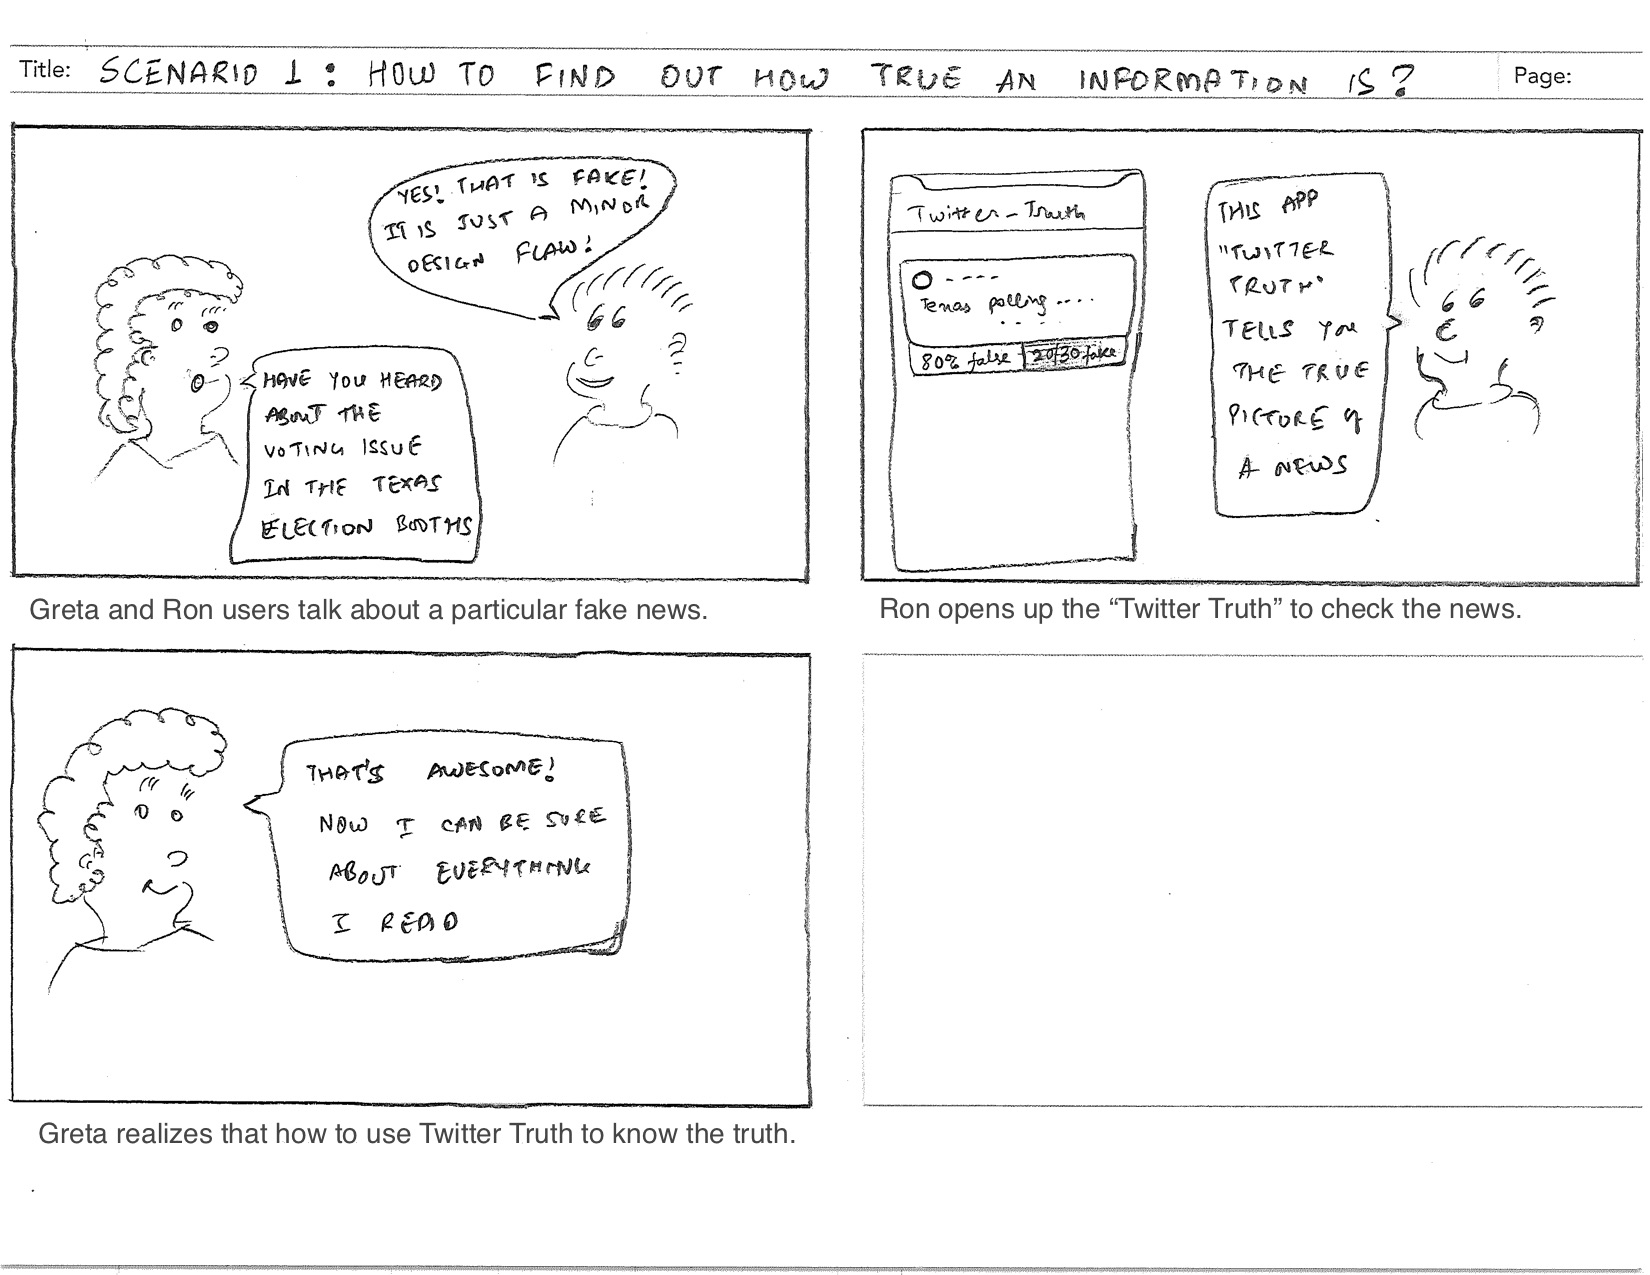 Title: SCENARIO 1 : HOW TO FIND OUT HOW TRUE AN INFORMATION IS?
Page:
YES! THAT IS FAKE!
IT IS JUST A MINOR
DESIGN FLAW!
HAVE YOU HEARD
ABOUT THE
VOTING ISSUE
IN THE TEXAS
ELECTION BOOTHS
Greta and Ron users talk about a particular fake news.
Twitter-Truth
Texas polling ....
80% false
20/30 fake
THIS APP
"TWITTER
TRUTH"
TELLS YOU
THE TRUE
PICTURE of
A NEWS
Ron opens up the “Twitter Truth” to check the news.
THAT'S AWESOME!
NOW I CAN BE SURE
ABOUT EVERYTHING
I READ
Greta realizes that how to use Twitter Truth to know the truth.